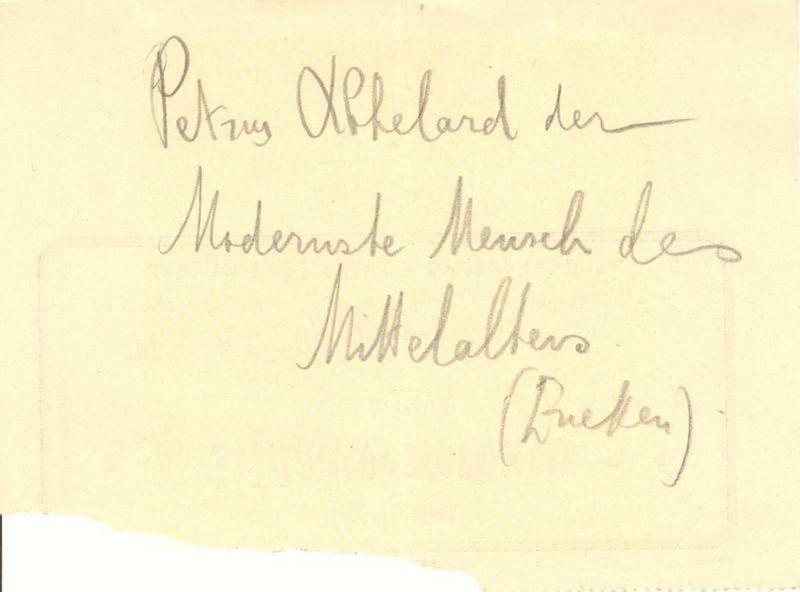 Petrus Abbelard der
Modernste Mensch des
Mittelalters